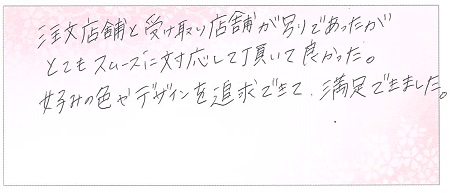 注文店舗と受け取り店舗が別りであったが
とてもスムーズに対応して頂いて良かった。
好みの色やデザインを追求できて、満足できました。